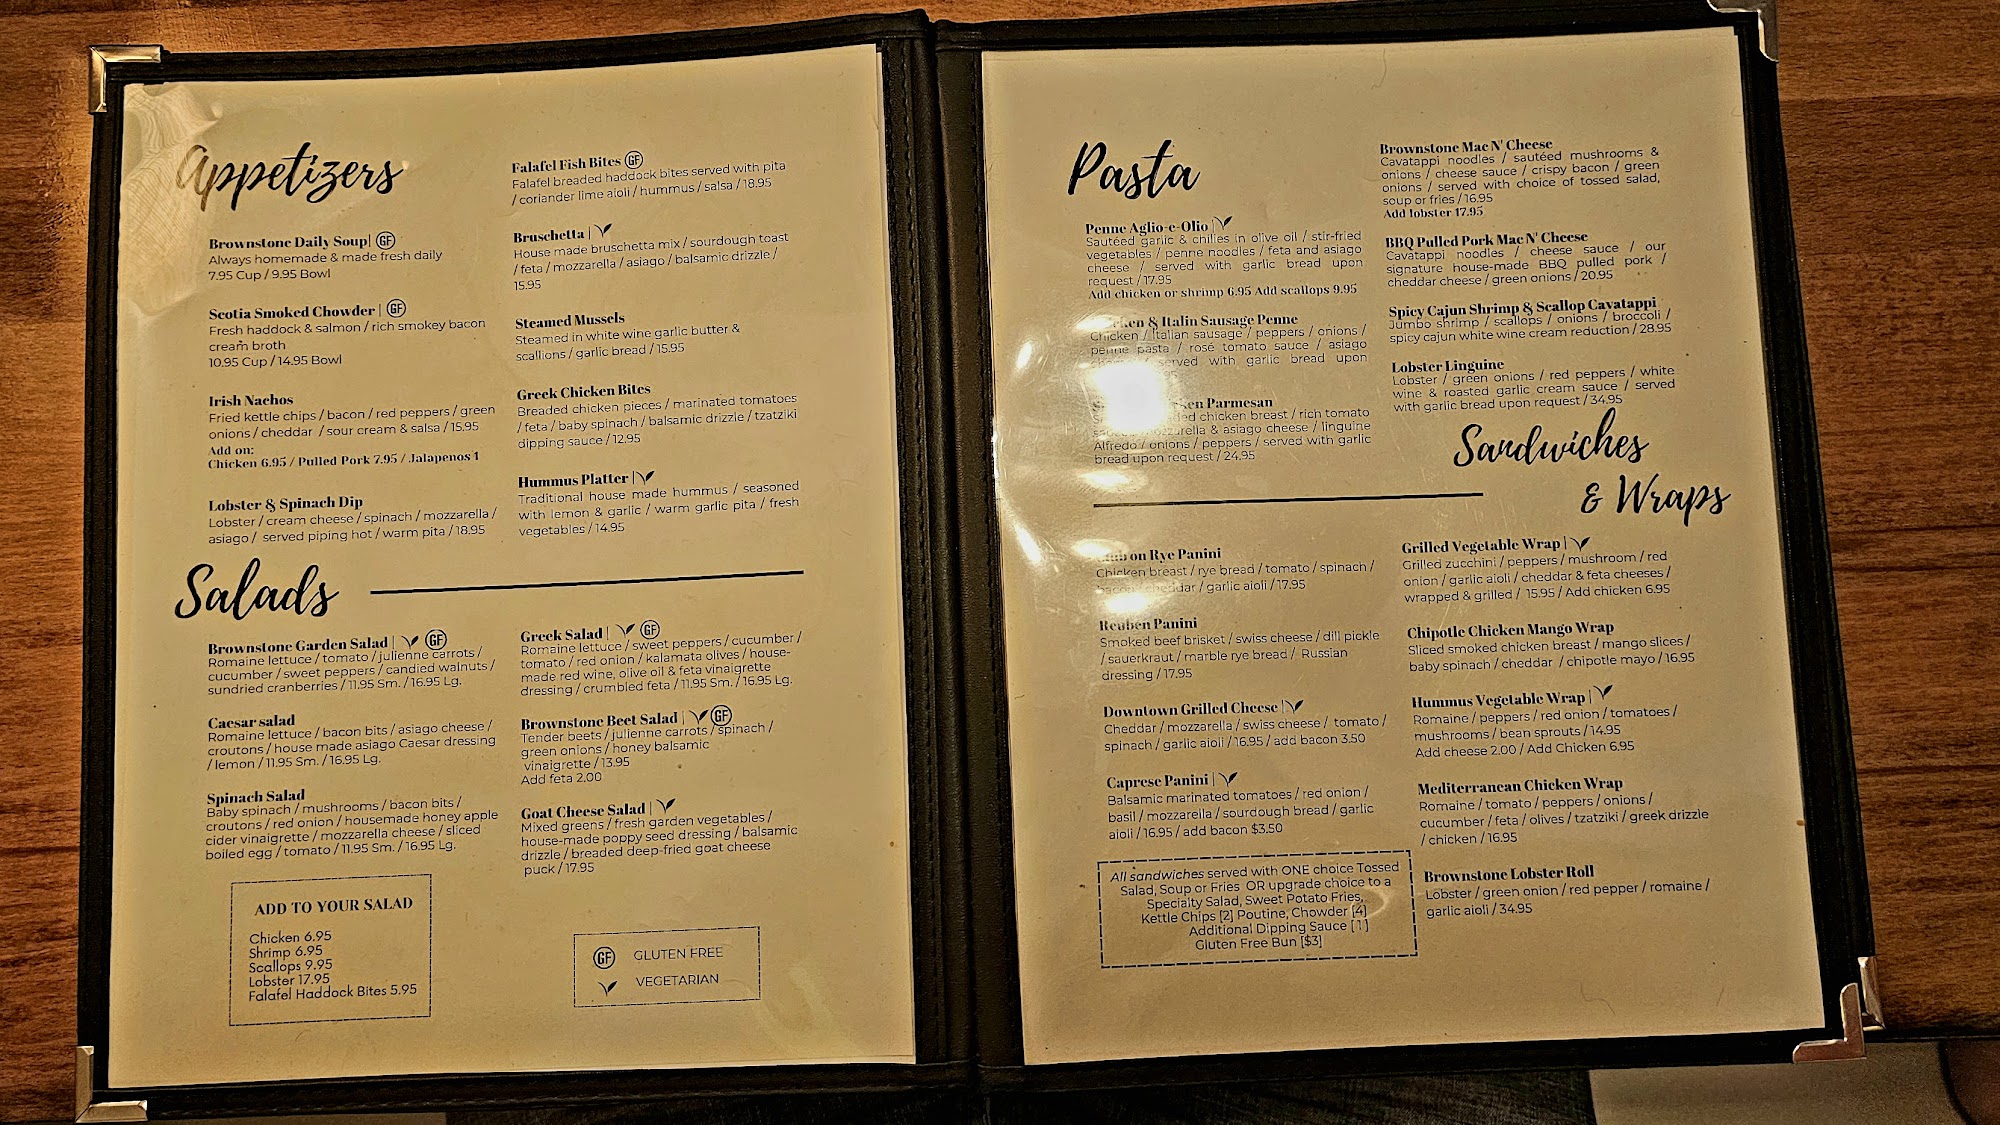 Appetizers
Brownstone Daily Soup| GF
Always homemade & made fresh daily
7.95 Cup / 9.95 Bowl
Scotia Smoked Chowder | GF
Fresh haddock & salmon / rich smokey bacon
cream broth
10.95 Cup / 14.95 Bowl
Irish Nachos
Fried kettle chips / bacon / red peppers / green
onions / cheddar / sour cream & salsa / 15.95
Add on:
Chicken 6.95 / Pulled Pork 7.95 / Jalapenos 1
Lobster & Spinach Dip
Lobster / cream cheese / spinach / mozzarella /
asiago / served piping hot / warm pita / 18.95
Falafel Fish Bites GF
Falafel breaded haddock bites served with pita
/ coriander lime aioli / hummus / salsa / 18.95
Bruschetta |
House made bruschetta mix / sourdough toast
/ feta / mozzarella / asiago / balsamic drizzle /
15.95
Steamed Mussels
Steamed in white wine garlic butter &
scallions / garlic bread / 15.95
Greek Chicken Bites
Breaded chicken pieces / marinated tomatoes
/ feta / baby spinach / balsamic drizzle / tzatziki
dipping sauce / 12.95
Hummus Platter |
Traditional house made hummus / seasoned
with lemon & garlic / warm garlic pita / fresh
vegetables / 14.95
Salads
Brownstone Garden Salad | GF
Romaine lettuce / tomato / julienne carrots /
cucumber / sweet peppers / candied walnuts /
sundried cranberries / 11.95 Sm. / 16.95 Lg.
Caesar salad
Romaine lettuce / bacon bits / asiago cheese /
croutons / house made asiago Caesar dressing
/ lemon / 11.95 Sm. / 16.95 Lg.
Spinach Salad
Baby spinach / mushrooms / bacon bits /
croutons / red onion / housemade honey apple
cider vinaigrette / mozzarella cheese / sliced
boiled egg / tomato / 11.95 Sm. / 16.95 Lg.
ADD TO YOUR SALAD
Chicken 6.95
Shrimp 6.95
Scallops 9.95
Lobster 17.95
Falafel Haddock Bites 5.95
Greek Salad | GF
Romaine lettuce / sweet peppers / cucumber /
tomato / red onion / kalamata olives / house-
made red wine, olive oil & feta vinaigrette
dressing / crumbled feta / 11.95 Sm. / 16.95 Lg.
Brownstone Beet Salad | GF
Tender beets / julienne carrots / spinach /
green onions / honey balsamic
vinaigrette / 13.95
Add feta 2.00
Goat Cheese Salad |
Mixed greens / fresh garden vegetables /
house-made poppy seed dressing / balsamic
drizzle / breaded deep-fried goat cheese
puck / 17.95
GF GLUTEN FREE
VEGETARIAN
Pasta
Penne Aglio-e-Olio |
Sautéed garlic & chilies in olive oil / stir-fried
vegetables / penne noodles / feta and asiago
cheese / served with garlic bread upon
request / 17.95
Add chicken or shrimp 6.95 Add scallops 9.95
& Italin Sausage Penne
Chicken / Italian sausage / peppers / onions /
penne pasta / rosé tomato sauce / asiago
served with garlic bread upon
Parmesan
chicken breast / rich tomato
mozzarella & asiago cheese / linguine
Alfredo / onions / peppers / served with garlic
bread upon request / 24.95
Brownstone Mac N' Cheese
Cavatappi noodles / sautéed mushrooms &
onions / cheese sauce / crispy bacon / green
onions / served with choice of tossed salad,
soup or fries / 16.95
Add lobster 17.95
BBQ Pulled Pork Mac N' Cheese
Cavatappi noodles / cheese sauce / our
signature house-made BBQ pulled pork /
cheddar cheese / green onions / 20.95
Spicy Cajun Shrimp & Scallop Cavatappi
Jumbo shrimp / scallops / onions / broccoli /
spicy cajun white wine cream reduction / 28.95
Lobster Linguine
Lobster / green onions / red peppers / white
wine & roasted garlic cream sauce / served
with garlic bread upon request / 34.95
Sandwiches
& Wraps
on Rye Panini
Chicken breast / rye bread / tomato / spinach /
bacon / cheddar / garlic aioli / 17.95
Reuben Panini
Smoked beef brisket / swiss cheese / dill pickle
/ sauerkraut / marble rye bread / Russian
dressing / 17.95
Downtown Grilled Cheese |
Cheddar / mozzarella / swiss cheese / tomato /
spinach / garlic aioli / 16.95 / add bacon 3.50
Caprese Panini |
Balsamic marinated tomatoes / red onion /
basil / mozzarella / sourdough bread / garlic
aioli / 16.95 / add bacon $3.50
All sandwiches served with ONE choice Tossed
Salad, Soup or Fries OR upgrade choice to a
Specialty Salad, Sweet Potato Fries,
Kettle Chips [2] Poutine, Chowder [4]
Additional Dipping Sauce [1]
Gluten Free Bun [$3]
Grilled Vegetable Wrap |
Grilled zucchini / peppers / mushroom / red
onion / garlic aioli / cheddar & feta cheeses /
wrapped & grilled / 15.95 / Add chicken 6.95
Chipotle Chicken Mango Wrap
Sliced smoked chicken breast / mango slices /
baby spinach / cheddar / chipotle mayo / 16.95
Hummus Vegetable Wrap |
Romaine / peppers / red onion / tomatoes /
mushrooms / bean sprouts / 14.95
Add cheese 2.00 / Add Chicken 6.95
Mediterranean Chicken Wrap
Romaine / tomato / peppers / onions /
cucumber / feta / olives / tzatziki / greek drizzle
/ chicken / 16.95
Brownstone Lobster Roll
Lobster / green onion / red pepper / romaine /
garlic aioli / 34.95